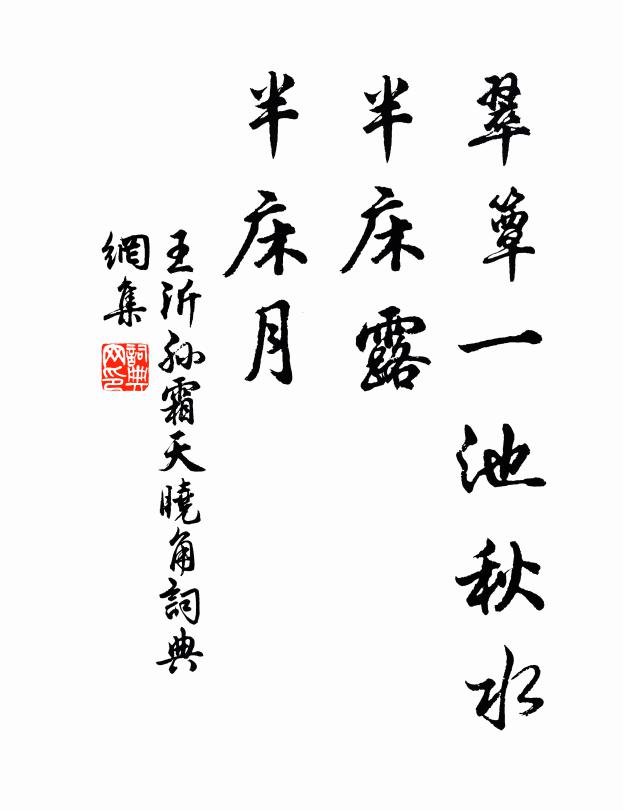 翠簟一池秋水
半床露
半床月
王沂孫霜天曉角詞典
網集
詞典網印